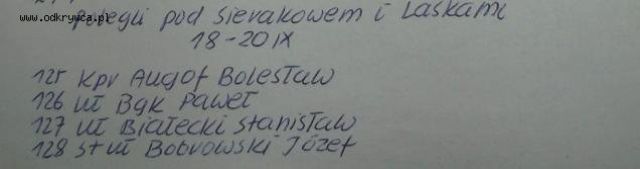 www.odkrywca.pl
polegli pod Sierakowem i Laskami
18-20 IX
125 kpr Augof Bolesław
126 uł Bąk Paweł
127 uł Białecki Stanisław
128 st uł Bobrowski Józef